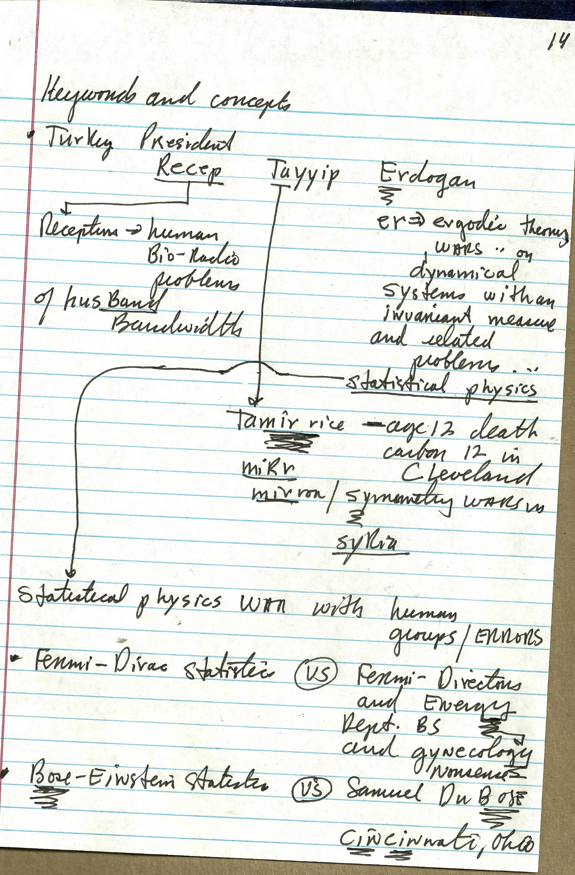 14
Keywords and concepts
• Turkey President
Recep Tayyip Erdogan
Reception → human
Bio-Radio
problems
of husBand
Bandwidth
er ⇒ ergodic theory
WARS ∵ on
dynamical
systems with an
invariant measure
and related
problems...
statistical physics
Tamir rice - age 12 death
carbon 12 in
Cleveland
miRr
mirror / symmetry WARS in
syRia
Statistical physics WAR with human
groups / ERRORS
• Fermi-Dirac statistics VS Fermi-Directors
and Energy
Dept. BS
and gynecology
nonsense
• Bose-Einstein statistics VS Samuel DuBose
Cincinnati, Ohio